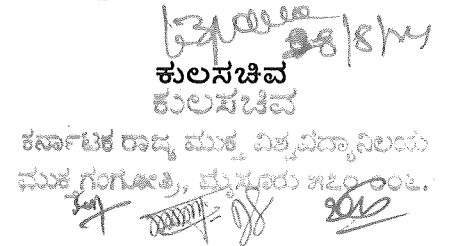 28/8/14
ಕುಲಸಚಿವ
ಕುಲಸಚಿವ
ಕರ್ನಾಟಕ ರಾಜ್ಯ ಮುಕ್ತ ವಿಶ್ವವಿದ್ಯಾನಿಲಯ
ಮುಕ್ತಗಂಗೋತ್ರಿ, ಮೈಸೂರು ೫೭೦ ೦೦೬.